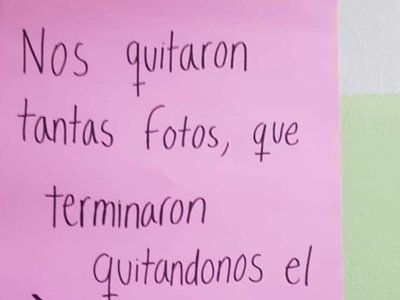 Nos quitaron
tantas fotos, que
terminaron
quitandonos el